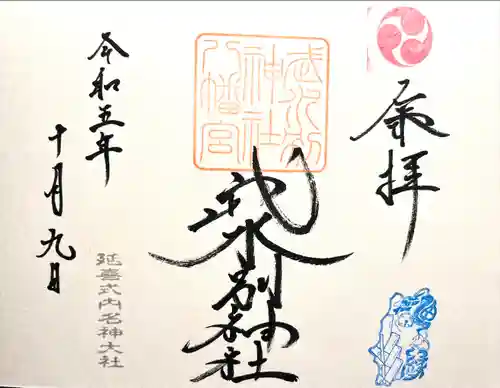 奉拝
武水別神社
武水別
神社
八幡宮
延喜式内名神大社
令和五年
十月九日